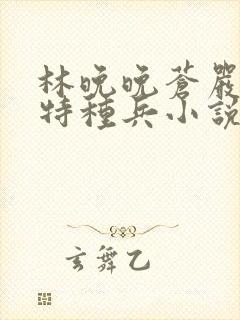 林晚晚蒼嚴
特種兵小說
玄舞乙